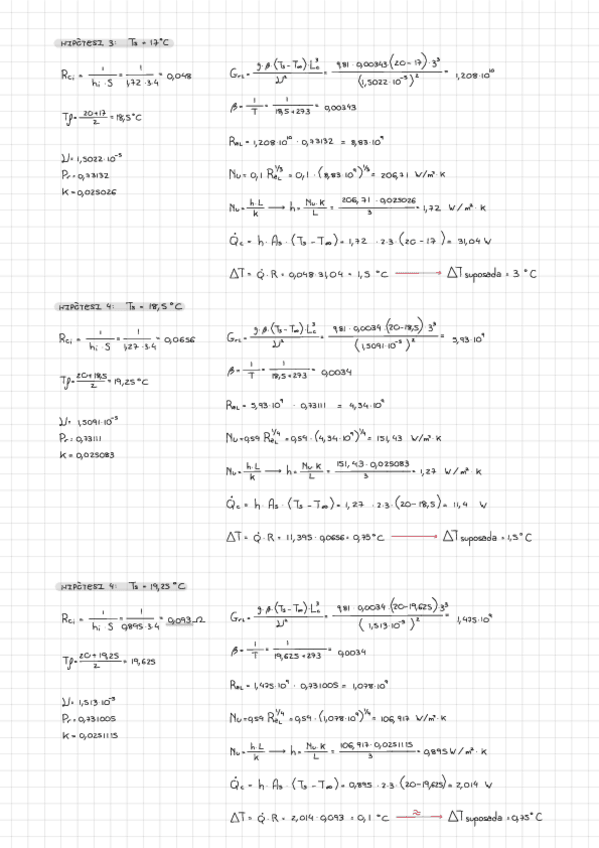 HIPÒTESI 3: Ts = 17°C
Rci = 1 / (hi · S) = 1 / (1,72 · 3·4) = 0,048
Tf = (20+17) / 2 = 18,5°C
ν = 1,5022·10⁻⁵
Pr = 0,73132
K = 0,025026
GrL = g·β·(Ts - T∞)·Lc³ / ν² = 9,81 · 0,00343(20-17)·3³ / (1,5022·10⁻⁵)² = 1,208·10¹⁰
β = 1/T = 1 / (18,5+273) = 0,00343
RaL = 1,208·10¹⁰ · 0,73132 = 8,83·10⁹
Nu = 0,1 RaL^1/3 = 0,1 · (8,83·10⁹)^1/3 = 206,71 W/m²·K
Nu = h·L / k → h = Nu·K / L = 206,71 · 0,025026 / 3 = 1,72 W/m²·K
Q̇c = h · As · (Ts - T∞) = 1,72 · 2·3·(20-17) = 31,04 W
ΔT = Q̇·R = 0,048·31,04 = 1,5 °C → ΔT suposada = 3 °C
HIPÒTESI 4: Ts = 18,5°C
Rci = 1 / (hi · S) = 1 / (1,27 · 3·4) = 0,0656
Tf = (20+18,5) / 2 = 19,25°C
ν = 1,5091·10⁻⁵
Pr = 0,73111
K = 0,025083
GrL = g·β·(Ts - T∞)·Lc³ / ν² = 9,81 · 0,0034(20-18,5)·3³ / (1,5091·10⁻⁵)² = 5,93·10⁹
β = 1/T = 1 / (18,5+273) = 0,0034
RaL = 5,93·10⁹ · 0,73111 = 4,34·10⁹
Nu = 0,59 RaL^1/4 = 0,59 · (4,34·10⁹)^1/4 = 151,43 W/m²·K
Nu = h·L / k → h = Nu·K / L = 151,43 · 0,025083 / 3 = 1,27 W/m²·K
Q̇c = h · As · (Ts - T∞) = 1,27 · 2·3·(20-18,5) = 11,4 W
ΔT = Q̇·R = 11,395 · 0,0656 = 0,75°C → ΔT suposada = 1,5°C
HIPÒTESI 4: Ts = 19,25°C
Rci = 1 / (hi · S) = 1 / (0,895 · 3·4) = 0,093 Ω
Tf = (20+19,25) / 2 = 19,625
ν = 1,513·10⁻⁵
Pr = 0,731005
K = 0,0251115
GrL = g·β·(Ts - T∞)·Lc³ / ν² = 9,81 · 0,0034·(20-19,625)·3³ / (1,513·10⁻⁵)² = 1,475·10⁹
β = 1/T = 1 / (19,625+273) = 0,0034
RaL = 1,475·10⁹ · 0,731005 = 1,078·10⁹
Nu = 0,59 RaL^1/4 = 0,59 · (1,078·10⁹)^1/4 = 106,917 W/m²·K
Nu = h·L / k → h = Nu·K / L = 106,917 · 0,0251115 / 3 = 0,895 W/m²·K
Q̇c = h · As · (Ts - T∞) = 0,895 · 2·3·(20-19,625) = 2,014 W
ΔT = Q̇·R = 2,014·0,093 = 0,1 °C ≈→ ΔT suposada = 0,75°C